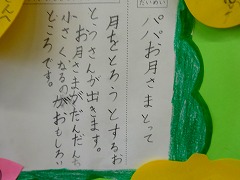 だいめい
パパお月さまとって
月をとろうとするお
とうさんが出きます。
お月さまがだんだん
小さくなるのがおもしろい
ところです。